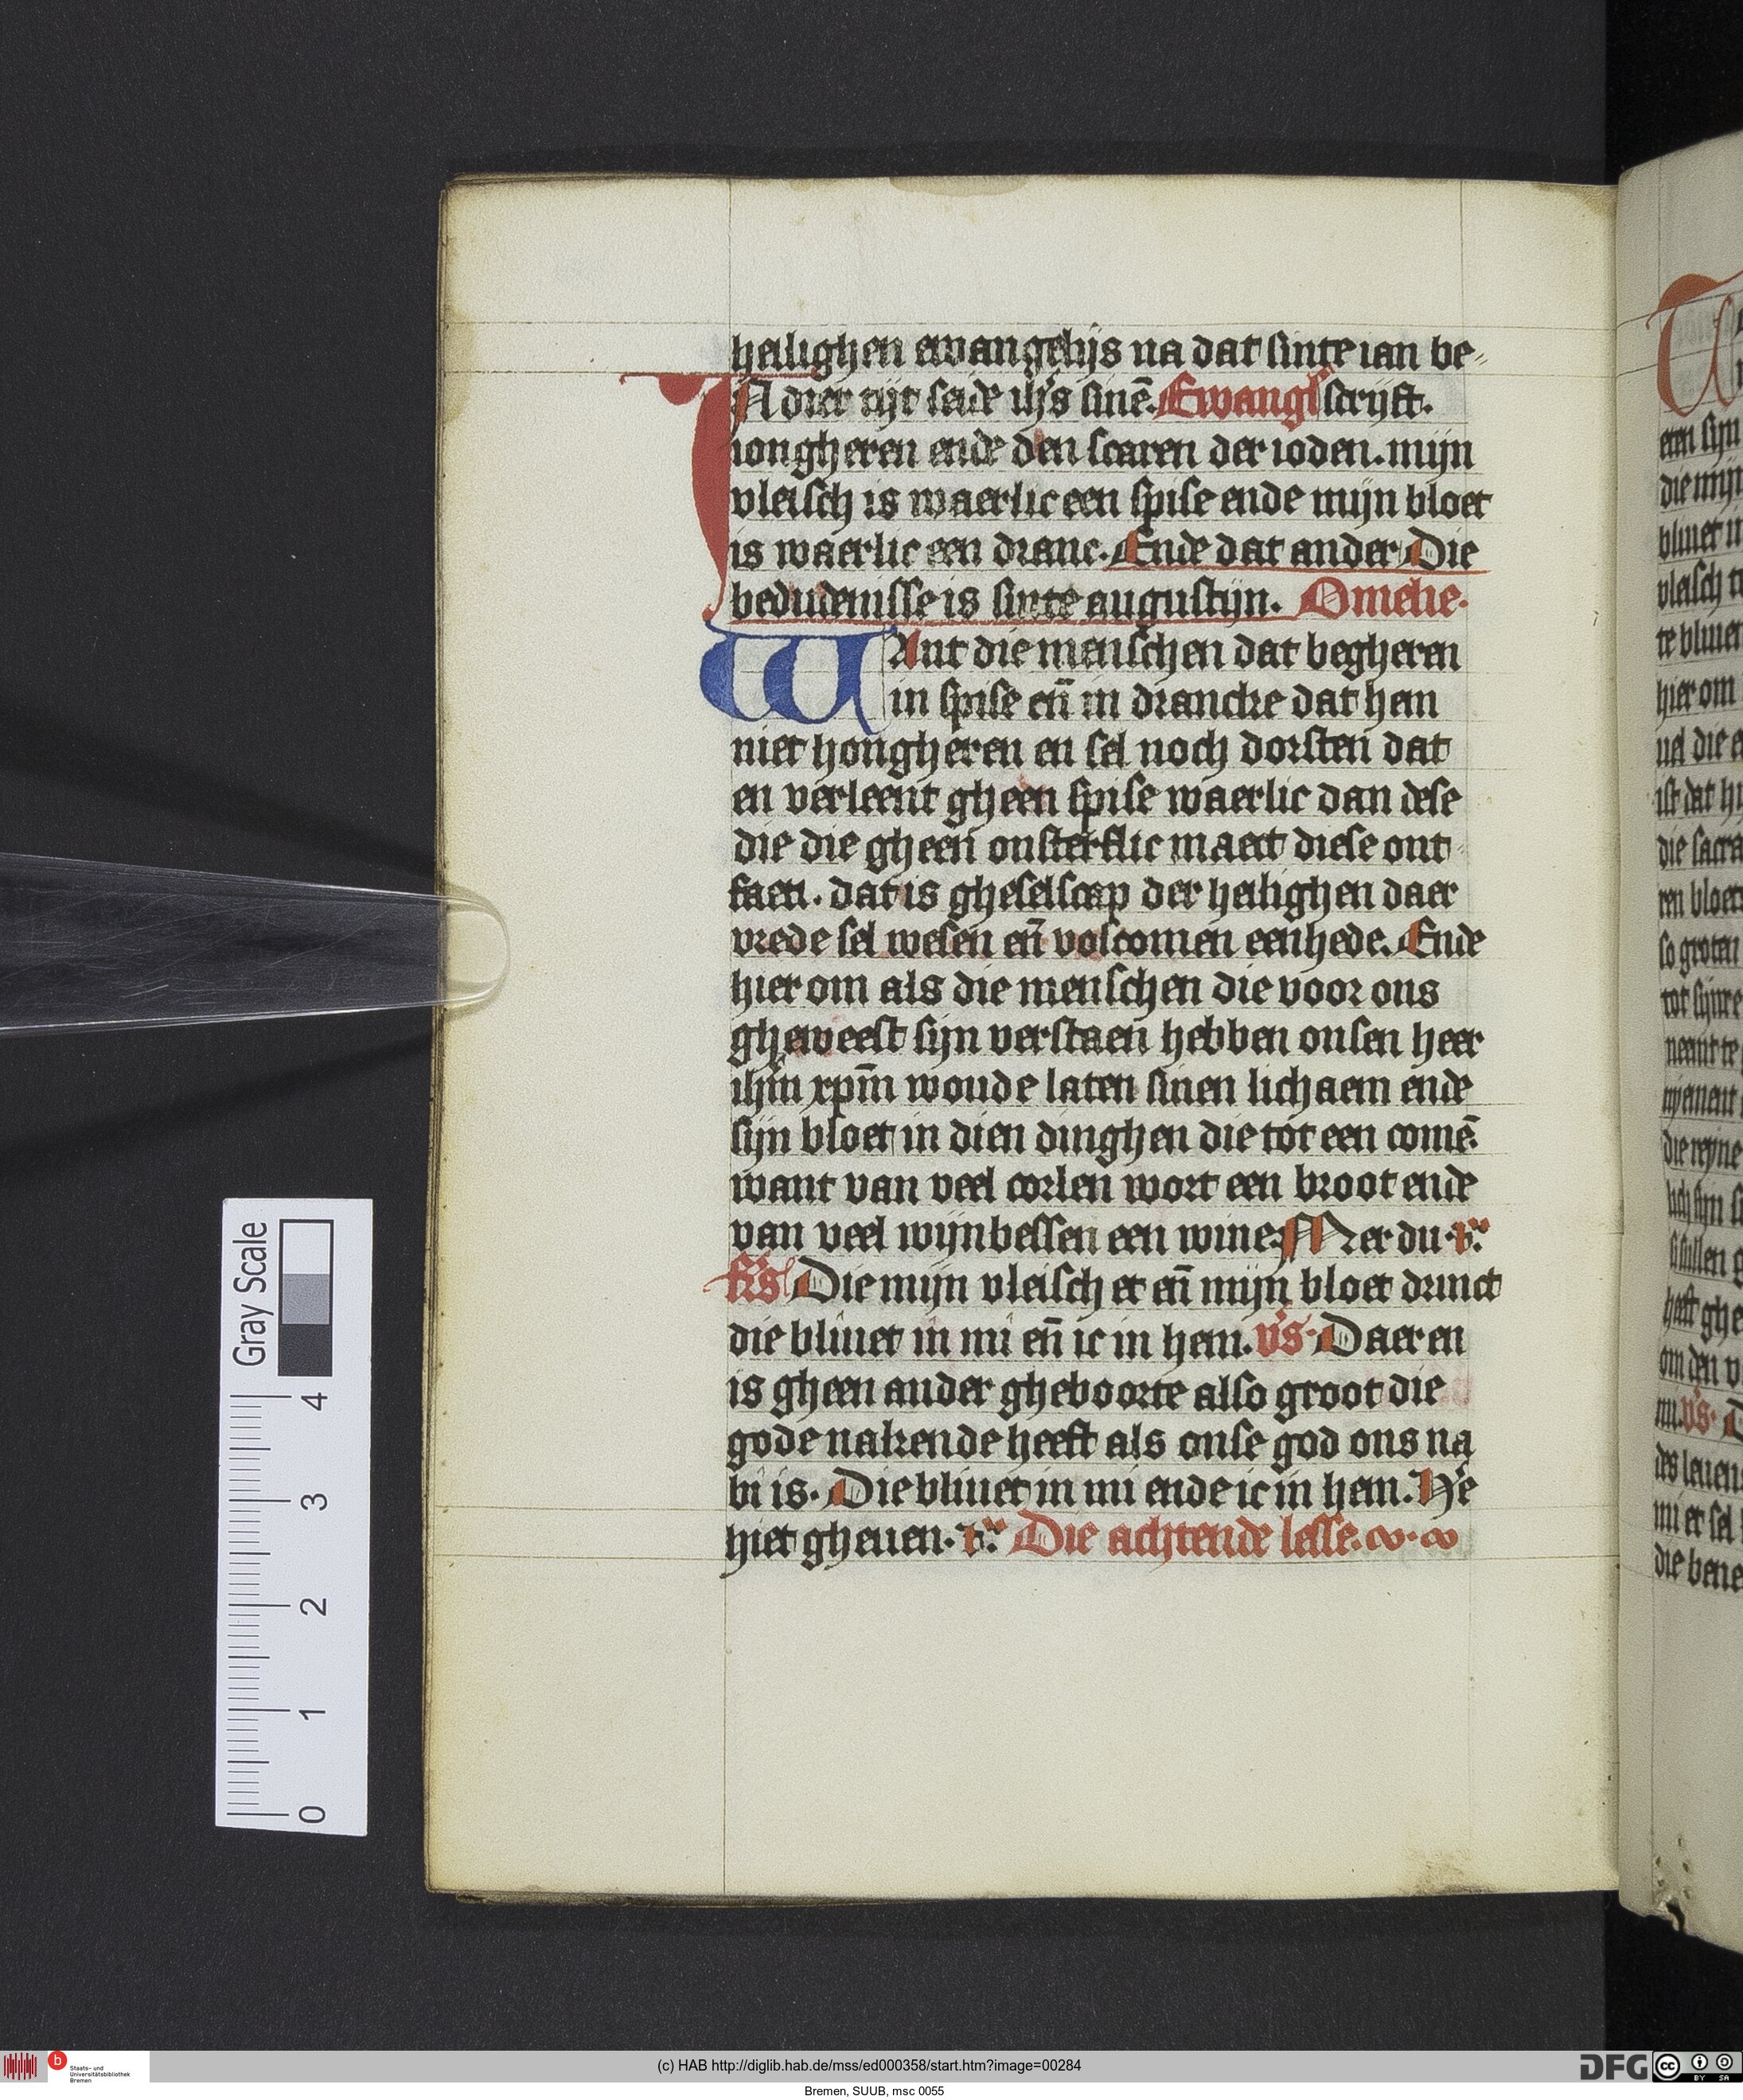 heilighen ewangelijs na dat sinte ian be-
IN dier tijt seide ihs̄ sinē. Ewangl̄ scrijft.
iongheren ende den scaren der ioden. mijn
vleisch is waerlic een spise ende mijn bloet
is waerlic een dranc. Ende dat ander Die
bedudenisse is sinte augustijn. Omelie.
WAnt die menschen dat begheren
in spise eñ in drancke dat hem
niet hongheren en sel noch dorsten dat
en verleent gheen spise waerlic dan dese
die die gheen onsterflic maect diese ont-
faen. dat is gheselscap der heilighen daer
vrede sel wesen eñ volcomen eenhede. Ende
hier om als die menschen die voor ons
gheweest sijn verstaen hebben onsen heer
ihm̄ xpm̄ woude laten sinen lichaem ende
sijn bloet in dien dinghen die tot een comē.
want van veel corlen wort een broot ende
van veel wijnbessen een wine. Mer du. v̄.
Rs̄ Die mijn vleisch et eñ mijn bloet drinct
die bliuet in mi eñ ic in hem. vs̄. Daer en
is gheen ander gheboorte also groot die
gode nakende heeft als onse god ons na
bi is. Die bliuet in mi ende ic in hem. He
hiet gheuen. v̄. Die achtende lesse.
eten sijn
die mijn
vleisch te
te bliuen
hier om
die sacra
so groten
die reyne
heeft ghe
om den v
mi. vs̄. D
mi et sel
die bene
Gray Scale
0 1 2 3 4
b Staats- und Universitätsbibliothek Bremen
(c) HAB http://diglib.hab.de/mss/ed000358/start.htm?image=00284
DFG cc BY SA
Bremen, SUUB, msc 0055